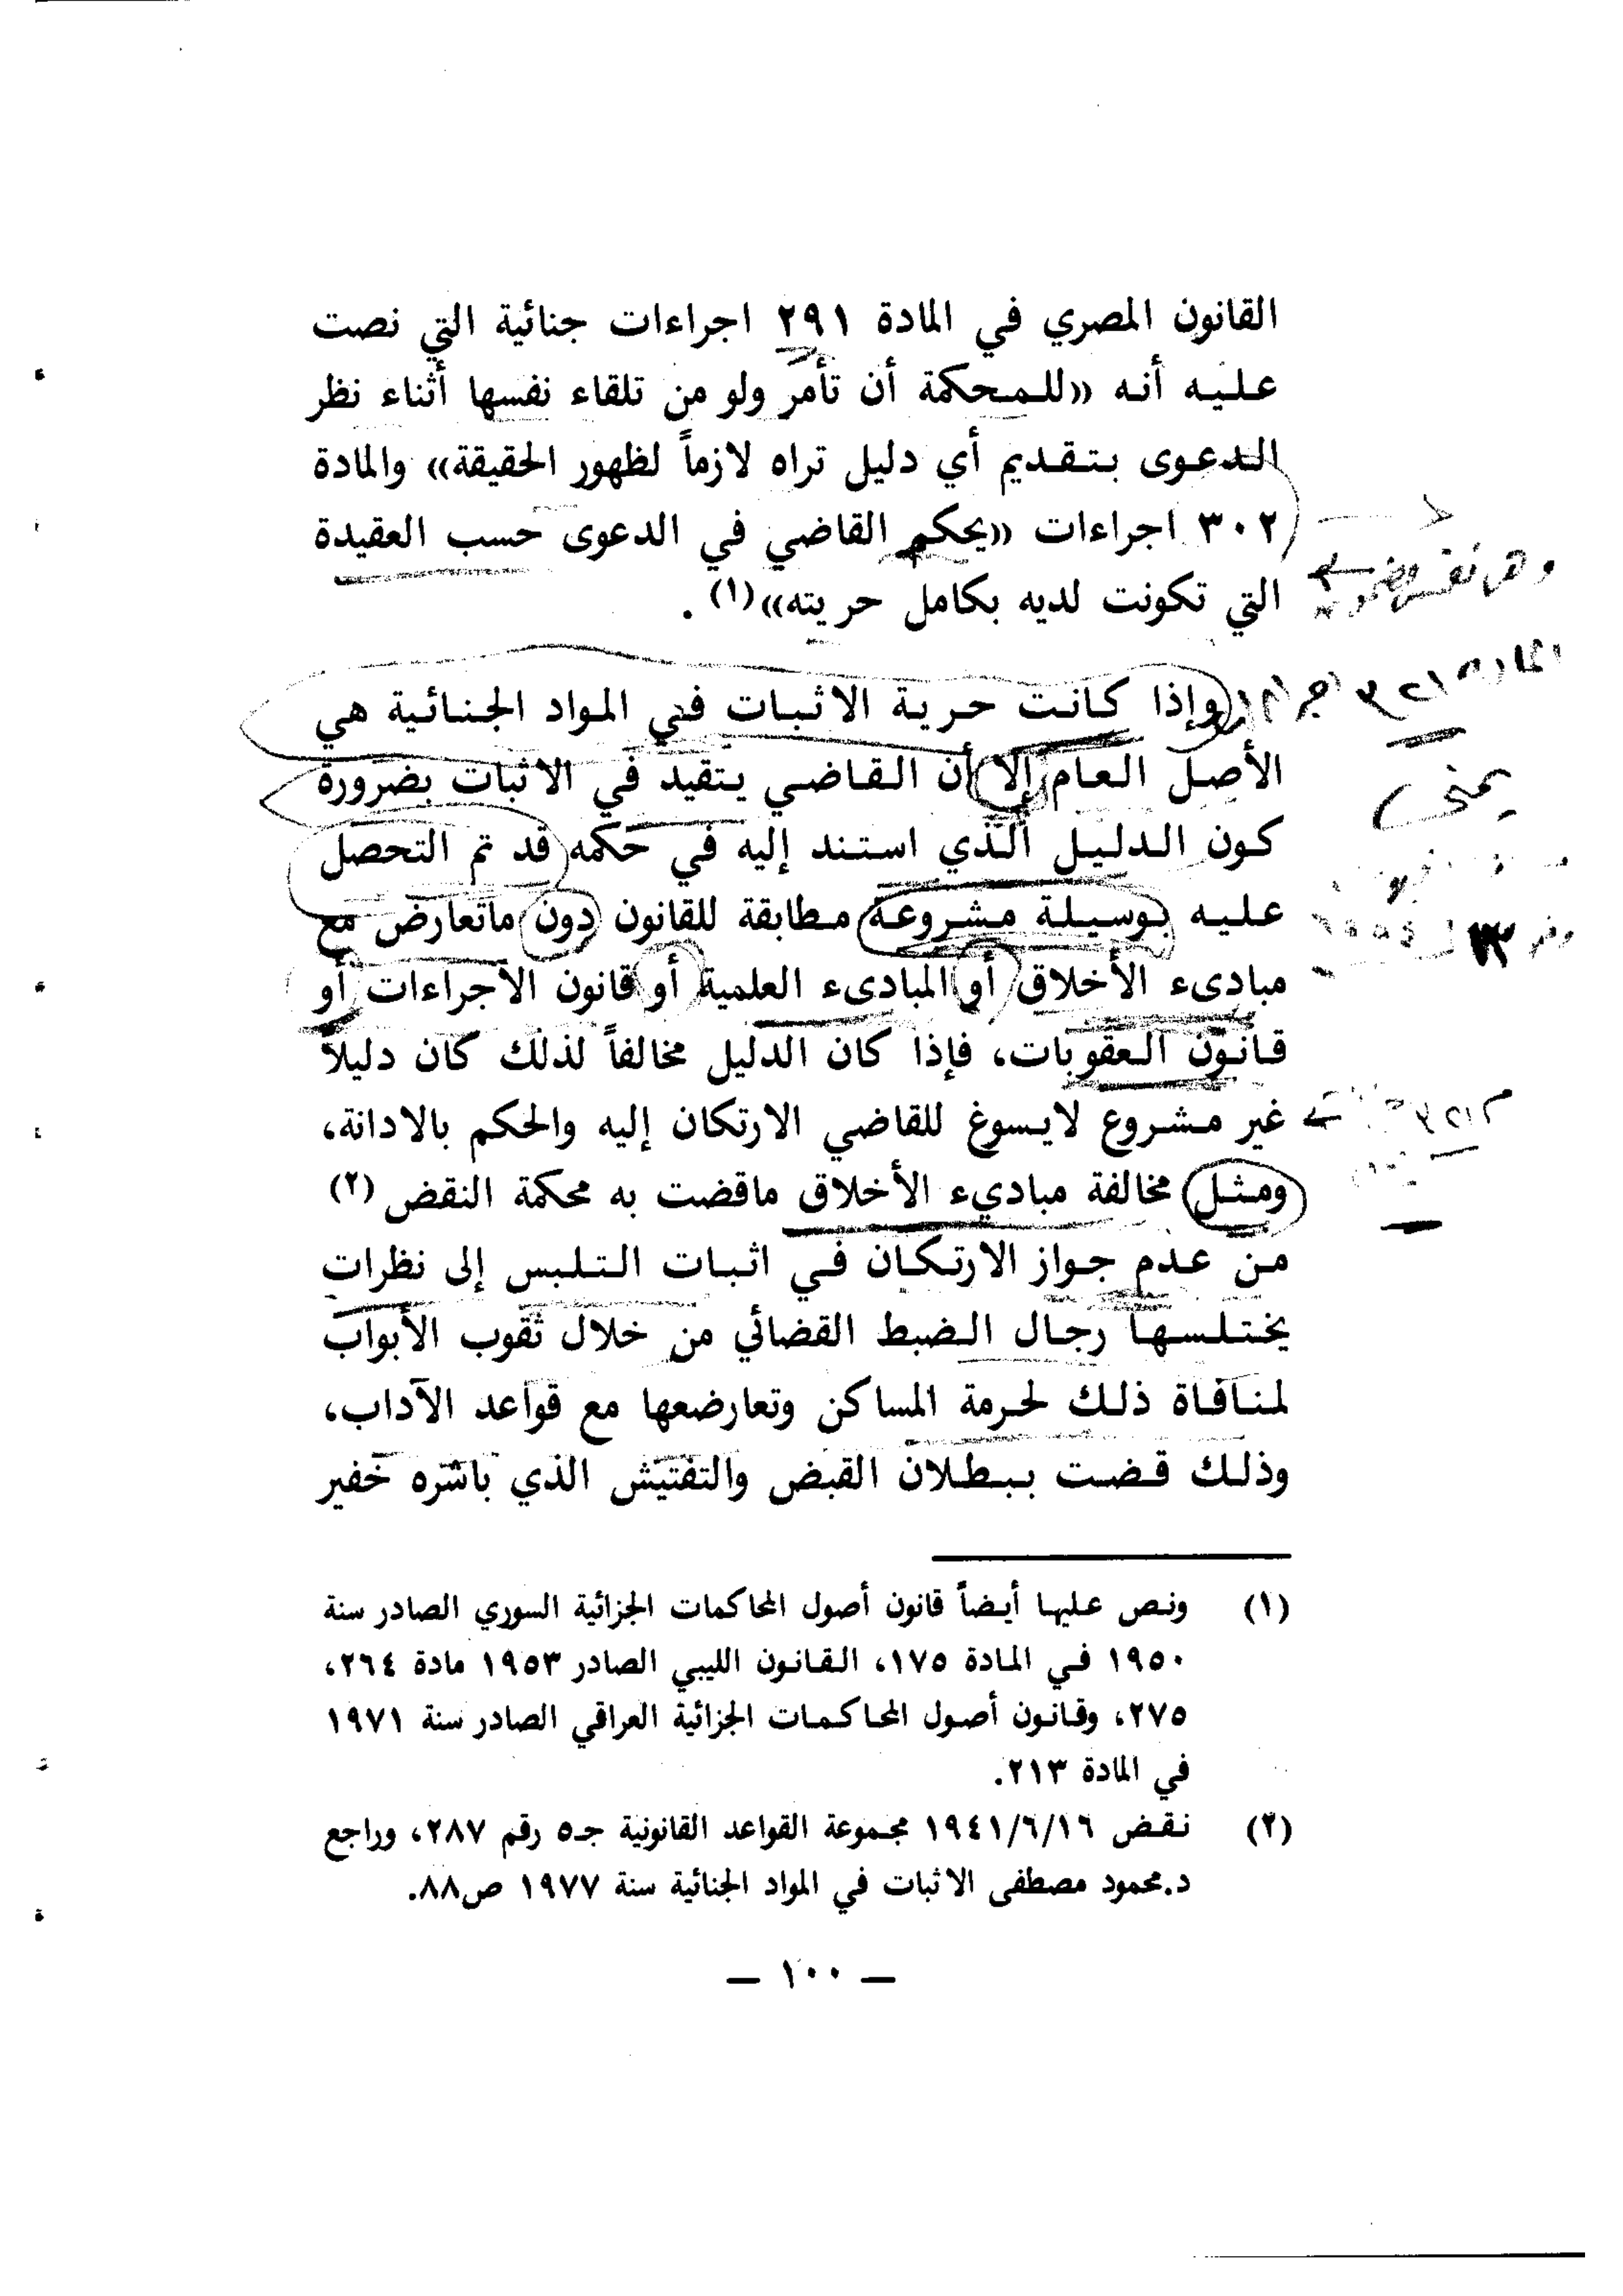 القانون المصري في المادة ٢٩١ اجراءات جنائية التي نصت
عليه أنه «للمحكمة أن تأمر ولو من تلقاء نفسها أثناء نظر
الدعوى بتقديم أي دليل تراه لازماً لظهور الحقيقة» والمادة
٣٠٢ اجراءات «يحكم القاضي في الدعوى حسب العقيدة
التي تكونت لديه بكامل حريته»(١).
وإذا كانت حرية الاثبات في المواد الجنائية هي
الأصل العام إلا أن القاضي يتقيد في الاثبات بضرورة
كون الدليل الذي استند إليه في حكمه قد تم التحصل
عليه بوسيلة مشروعة مطابقة للقانون دون ماتعارض مع
مبادىء الأخلاق أو المبادىء العلمية أو قانون الاجراءات أو
قانون العقوبات، فإذا كان الدليل مخالفاً لذلك كان دليلاً
غير مشروع لايسوغ للقاضي الارتكان إليه والحكم بالادانة،
ومثل مخالفة مباديء الأخلاق ماقضت به محكمة النقض (٢)
من عدم جواز الارتكان في اثبات التلبس إلى نظرات
يختلسها رجال الضبط القضائي من خلال ثقوب الأبواب
لمنافاة ذلك لحرمة المساكن وتعارضعها مع قواعد الآداب،
وذلك قضت ببطلان القبض والتفتيش الذي باشره خفير
(١) ونص عليها أيضاً قانون أصول المحاكمات الجزائية السوري الصادر سنة
١٩٥٠ في المادة ١٧٥، القانون الليبي الصادر ١٩٥٣ مادة ٢٦٤،
٢٧٥، وقانون أصول المحاكمات الجزائية العراقي الصادر سنة ١٩٧١
في المادة ٢١٣.
(٢) نقض ١٩٤١/٦/١٦ مجموعة القواعد القانونية جـ٥ رقم ٢٨٧، وراجع
د.محمود مصطفى الاثبات في المواد الجنائية سنة ١٩٧٧ ص٨٨.
— ١٠٠ —
المادة ٣٢١ اجراءات
يمني